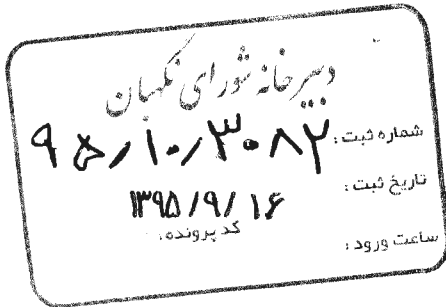 دبیرخانه شورای نگهبان
شماره ثبت: ۹۵/۱۰/۳۰۸۲
تاریخ ثبت: ۱۳۹۵/۹/۱۶
کد پرونده:
ساعت ورود: